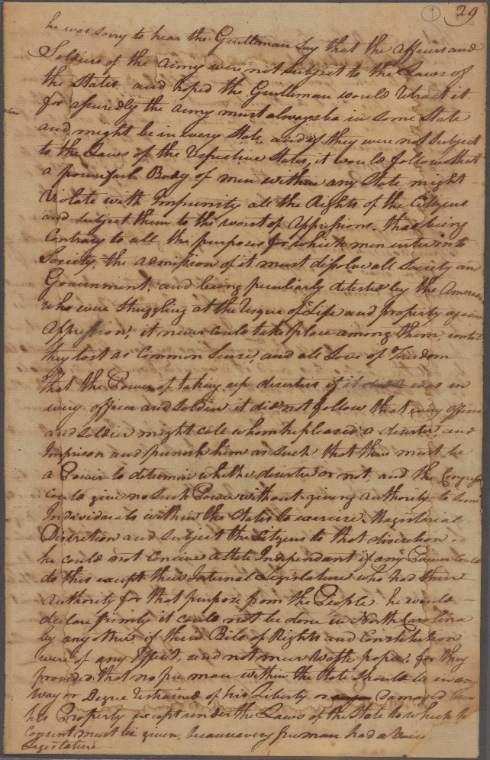 ① 29
he was sorry to hear the Gentleman Say that the officers and
Soldiers of the Army were not Subject to the Laws of
the States and hoped the Gentleman would retract it
for assuredly the Army must always be in some State
and might be in every State, and if they were not Subject
to the Laws of the Respective States, it would follow that
a powerful Body of men within any State might
Violate with Impunity all the Rights of the Citizens
and subject them to the worst of Oppressions. that being
Contrary to all the purposes for which men enter into
Society, the admission of it must dissolve all Society and
Government, and being peculiarly detested by the
who were Struggling at the risque of Life and property against
Oppression, it never could take place among them until
they lost as Common Sense, and all Love of freedom
That the Power of taking up deserters if was in
every officer and Soldier it did not follow that every officer
and Soldier might call whom he pleased a deserter and
Imprison and punish him as Such that there must be
a Power to determin whether deserter or not, and the Congress
could give no Such Power without giving authority to Some
Individuals within the States to exercise Magisterial
Discretion and Subject the Citizens to that discretion
he could not Conceive a State Independant if any Power could
do this except their Internal Legislature who had their
authority for that purpose from the People he would
declare firmly it could not be done in North Carolina
by any other if their Bill of Rights and Constitution
were of any Effect, and not mere Waste paper, for they
provided that no free man within the State should be in any
way or Degree restrained of his Liberty or
his Property except under the Laws of the State to which his
Consent must be given, because every freeman had a Voice
Legislature